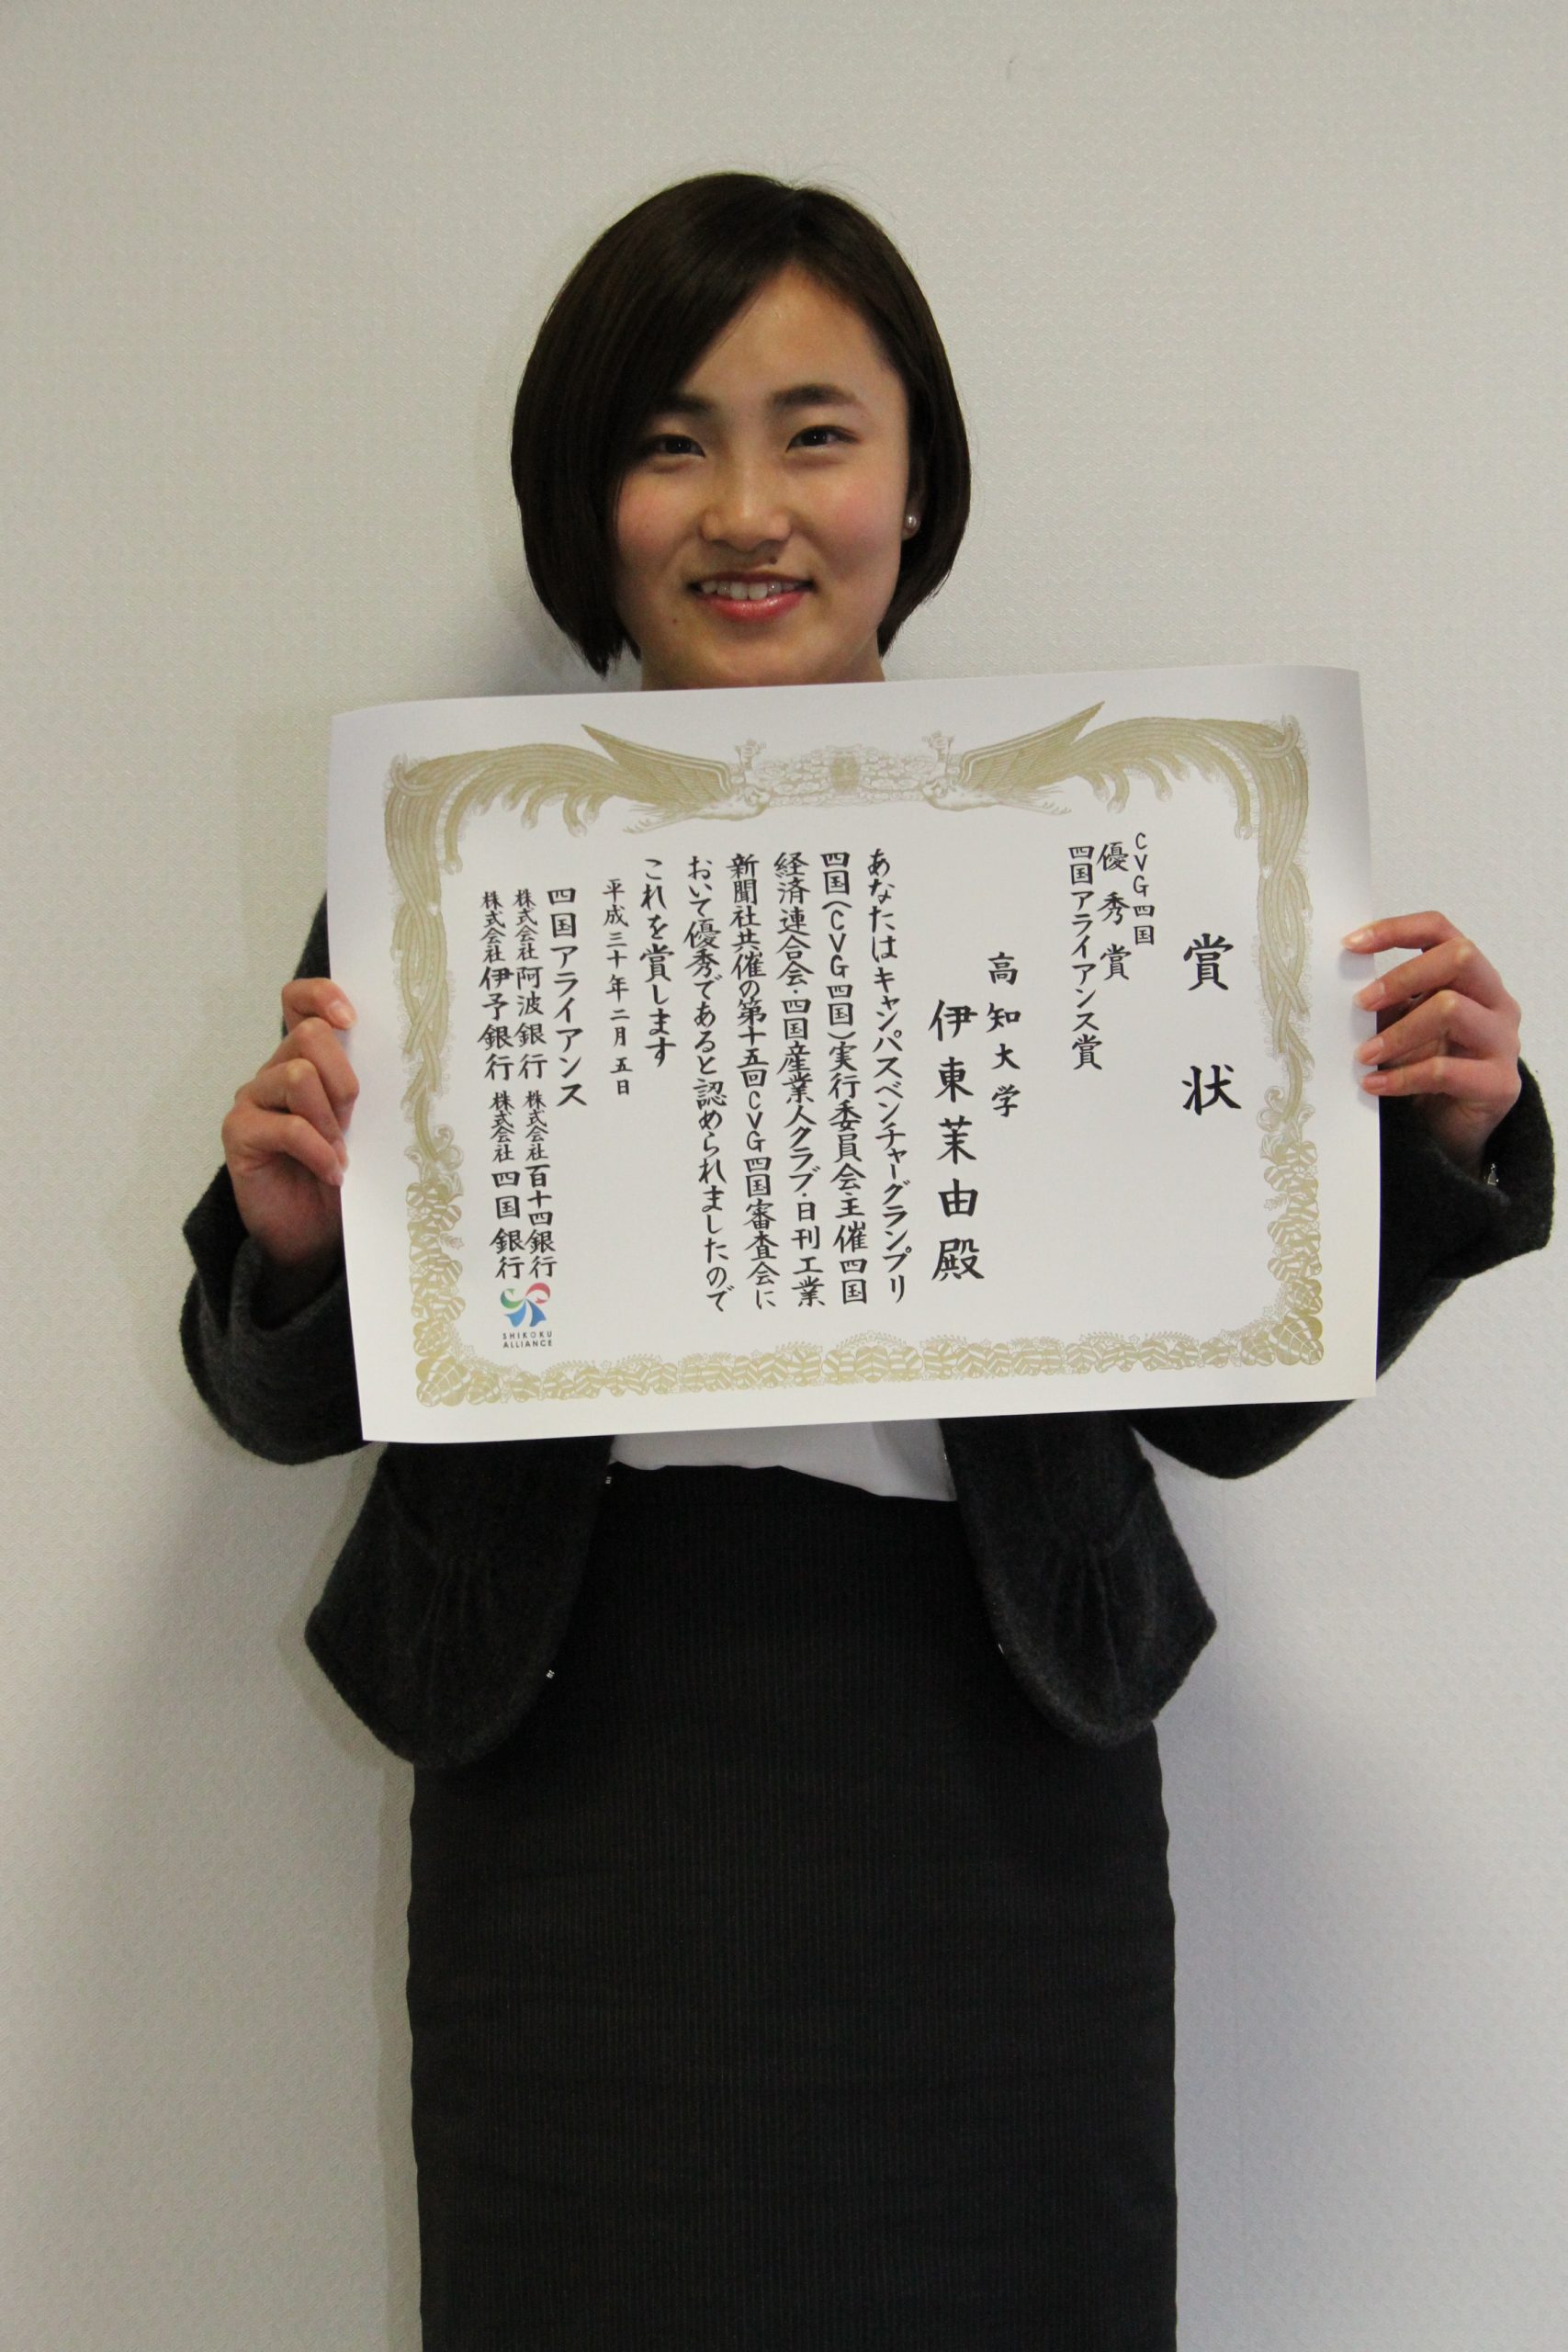 賞状
CVG四国
優秀賞
四国アライアンス賞
高知大学
伊東茉由殿
あなたはキャンパスベンチャーグランプリ
四国(CVG四国)実行委員会主催四国
経済連合会・四国産業人クラブ・日刊工業
新聞社共催の第十五回CVG四国審査会に
おいて優秀であると認められましたので
これを賞します
平成三十年二月五日
四国アライアンス
株式会社阿波銀行 株式会社百十四銀行
株式会社伊予銀行 株式会社四国銀行
SHIKOKU
ALLIANCE